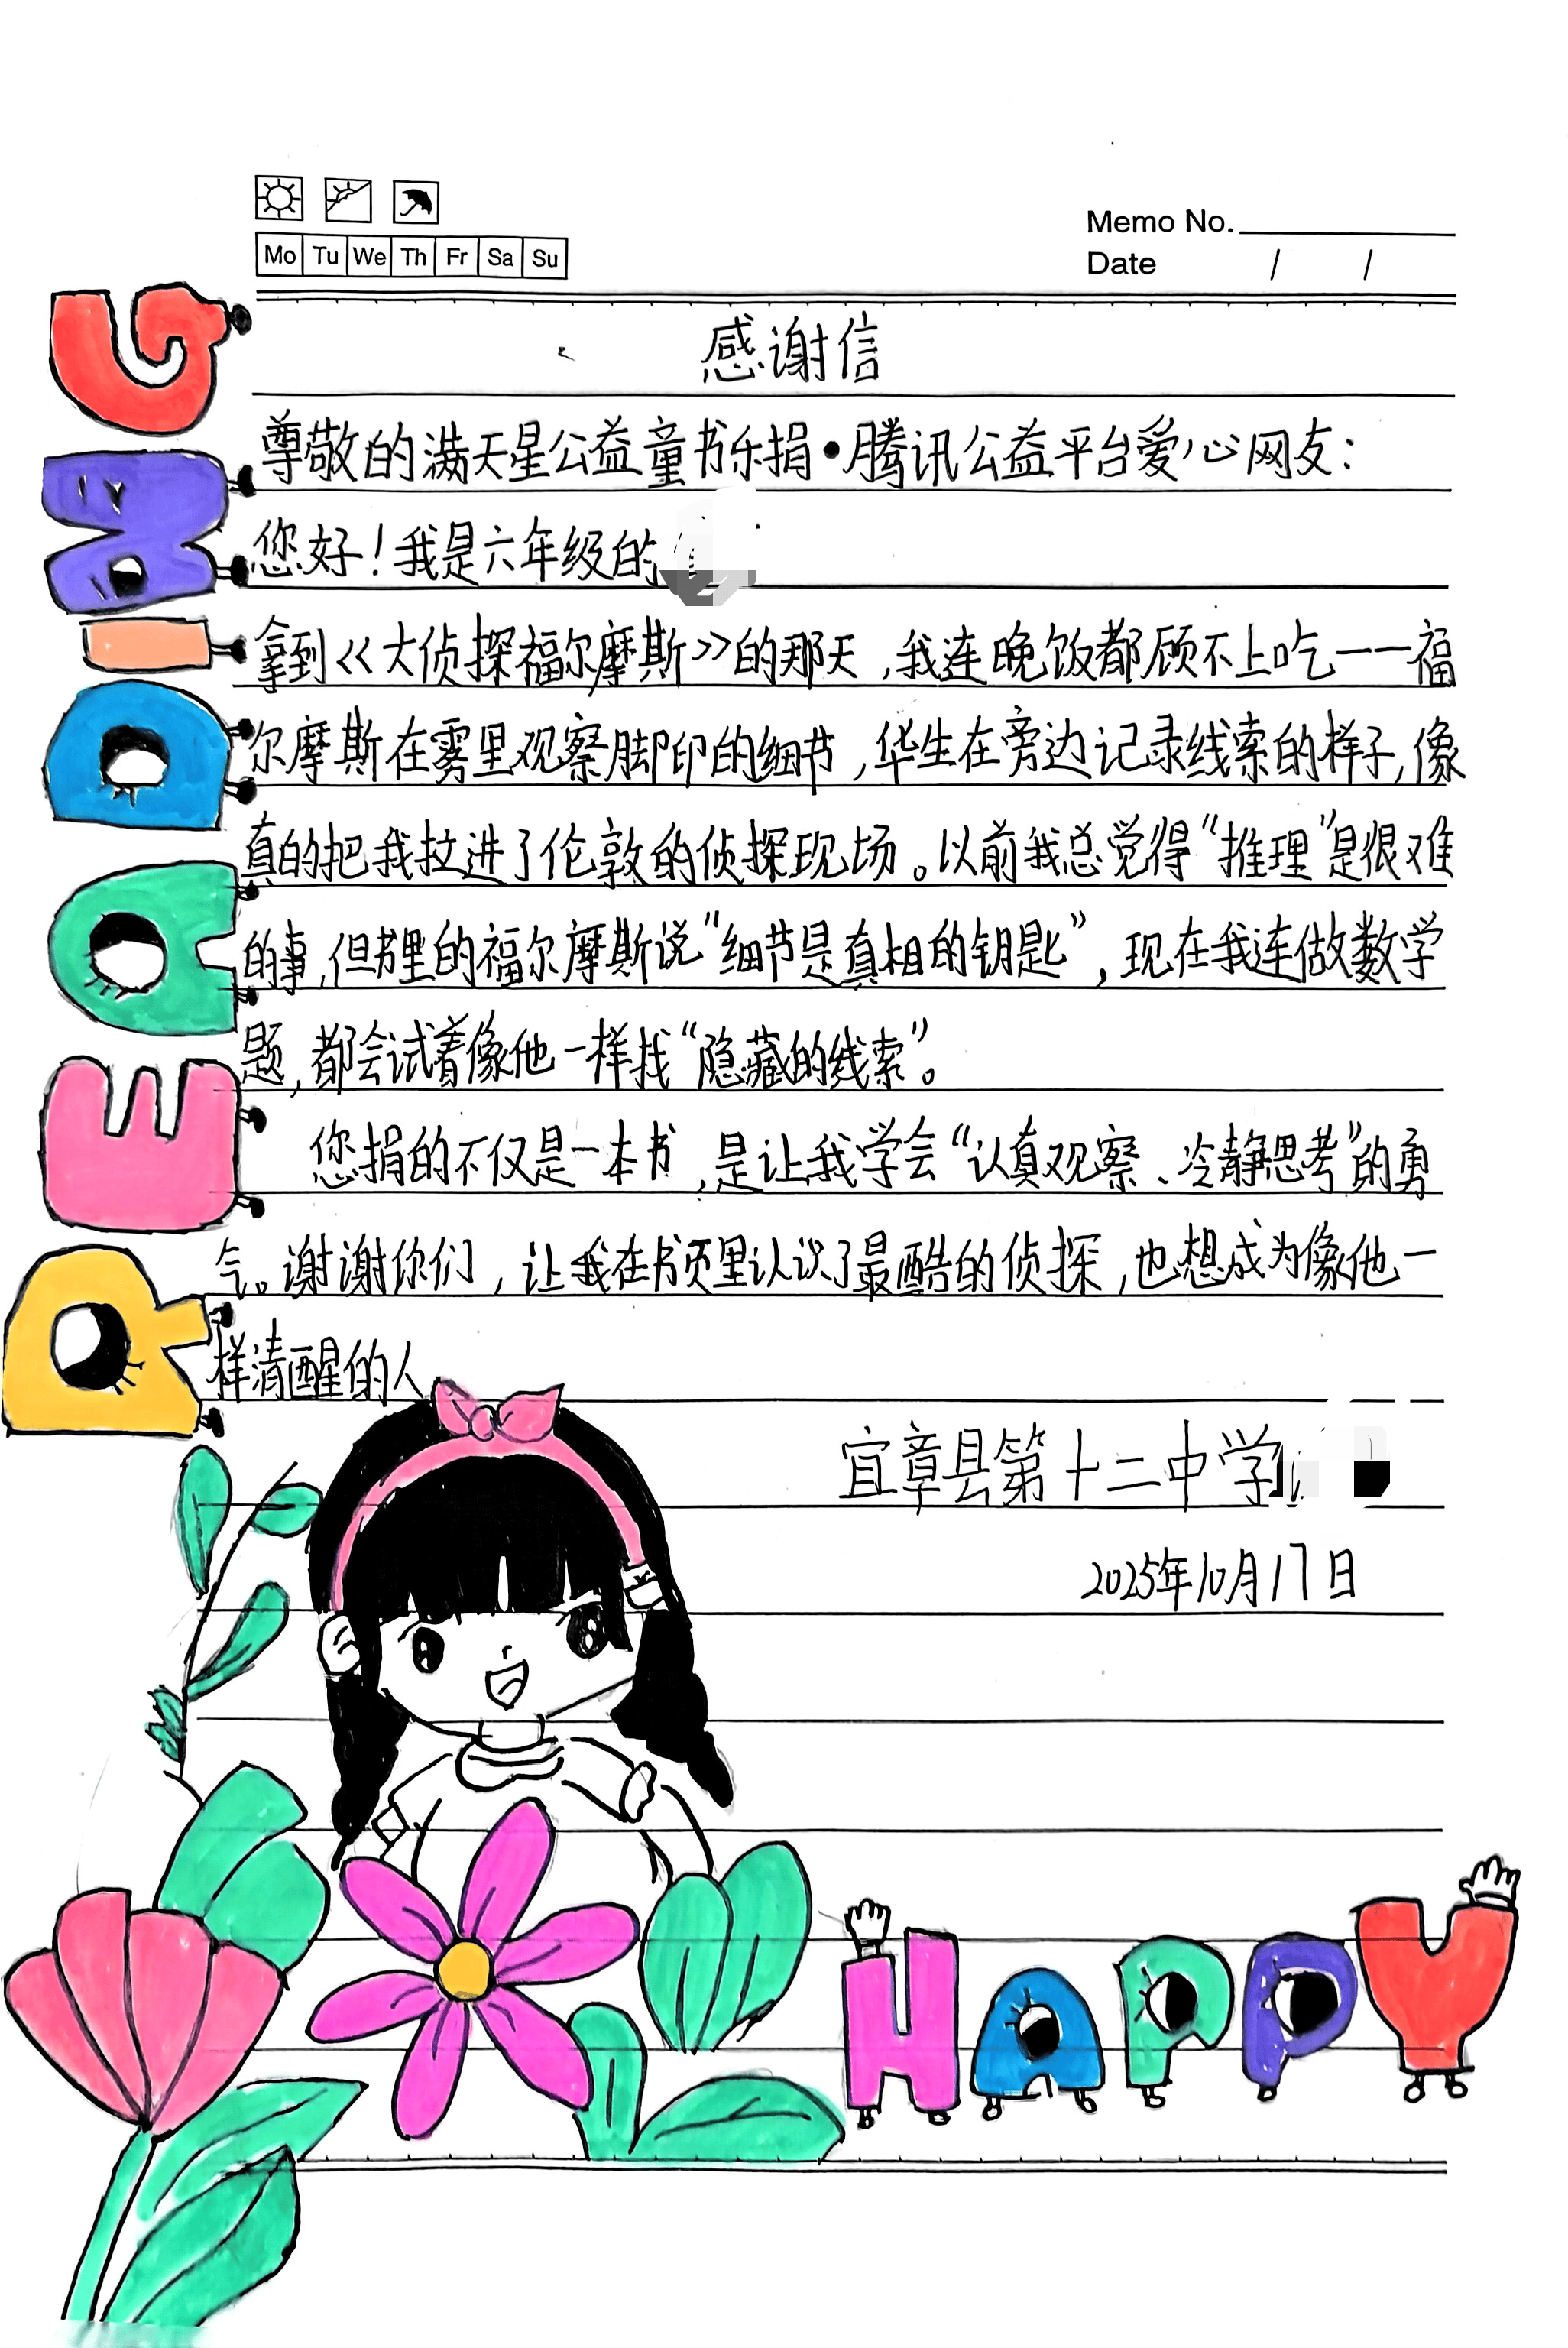 Mo Tu We Th Fr Sa Su
Memo No.
Date / /
感谢信
尊敬的满天星公益童书乐捐•腾讯公益平台爱心网友：
您好！我是六年级的
拿到《大侦探福尔摩斯》的那天，我连晚饭都顾不上吃——福
尔摩斯在雾里观察脚印的细节，华生在旁边记录线索的样子，像
真的把我拉进了伦敦的侦探现场。以前我总觉得“推理”是很难
的事，但书里的福尔摩斯说“细节是真相的钥匙”，现在我连做数学
题，都会试着像他一样找“隐藏的线索”。
您捐的不仅是一本书，是让我学会“认真观察、冷静思考”的勇
气。谢谢你们，让我在书页里认识了最酷的侦探，也想成为像他一
样清醒的人
宜章县第十二中学
2025年10月17日
READING
HAPPY